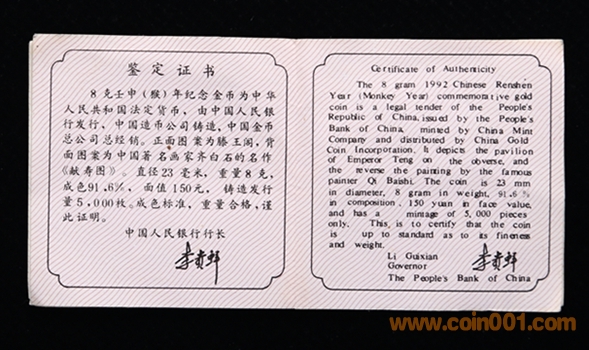 鉴定证书
8克壬申(猴)年纪念金币为中华
人民共和国法定货币，由中国人民银
行发行，中国造币公司铸造，中国金币
总公司总经销。正面图案为滕王阁，背
面图案为中国著名画家齐白石的名作
《献寿图》。直径23毫米，重量8克，
成色91.6%，面值150元，铸造发行
量5,000枚。成色标准，重量合格，谨
此证明。
中国人民银行行长
李贵鲜
Certificate of Authenticity
The 8 gram 1992 Chinese Renshen
Year (Monkey Year) commemorative gold
coin is a legal tender of the People's
Republic of China, issued by the People's
Bank of China, minted by China Mint
Company and distributed by China Gold
Coin Incorporation. It depicts the pavilion
of Emperor Teng on the obverse, and
the reverse the painting by the famous
painter Qi Baishi. The coin is 23 mm
in diameter, 8 gram in weight, 91.6%
in composition, 150 yuan in face value,
and has a mintage of 5,000 pieces
only. This is to certify that the coin
is up to standard as to its fineness
and weight.
Li Guixian
Governor
李贵鲜
The People's Bank of China
www.coin001.com